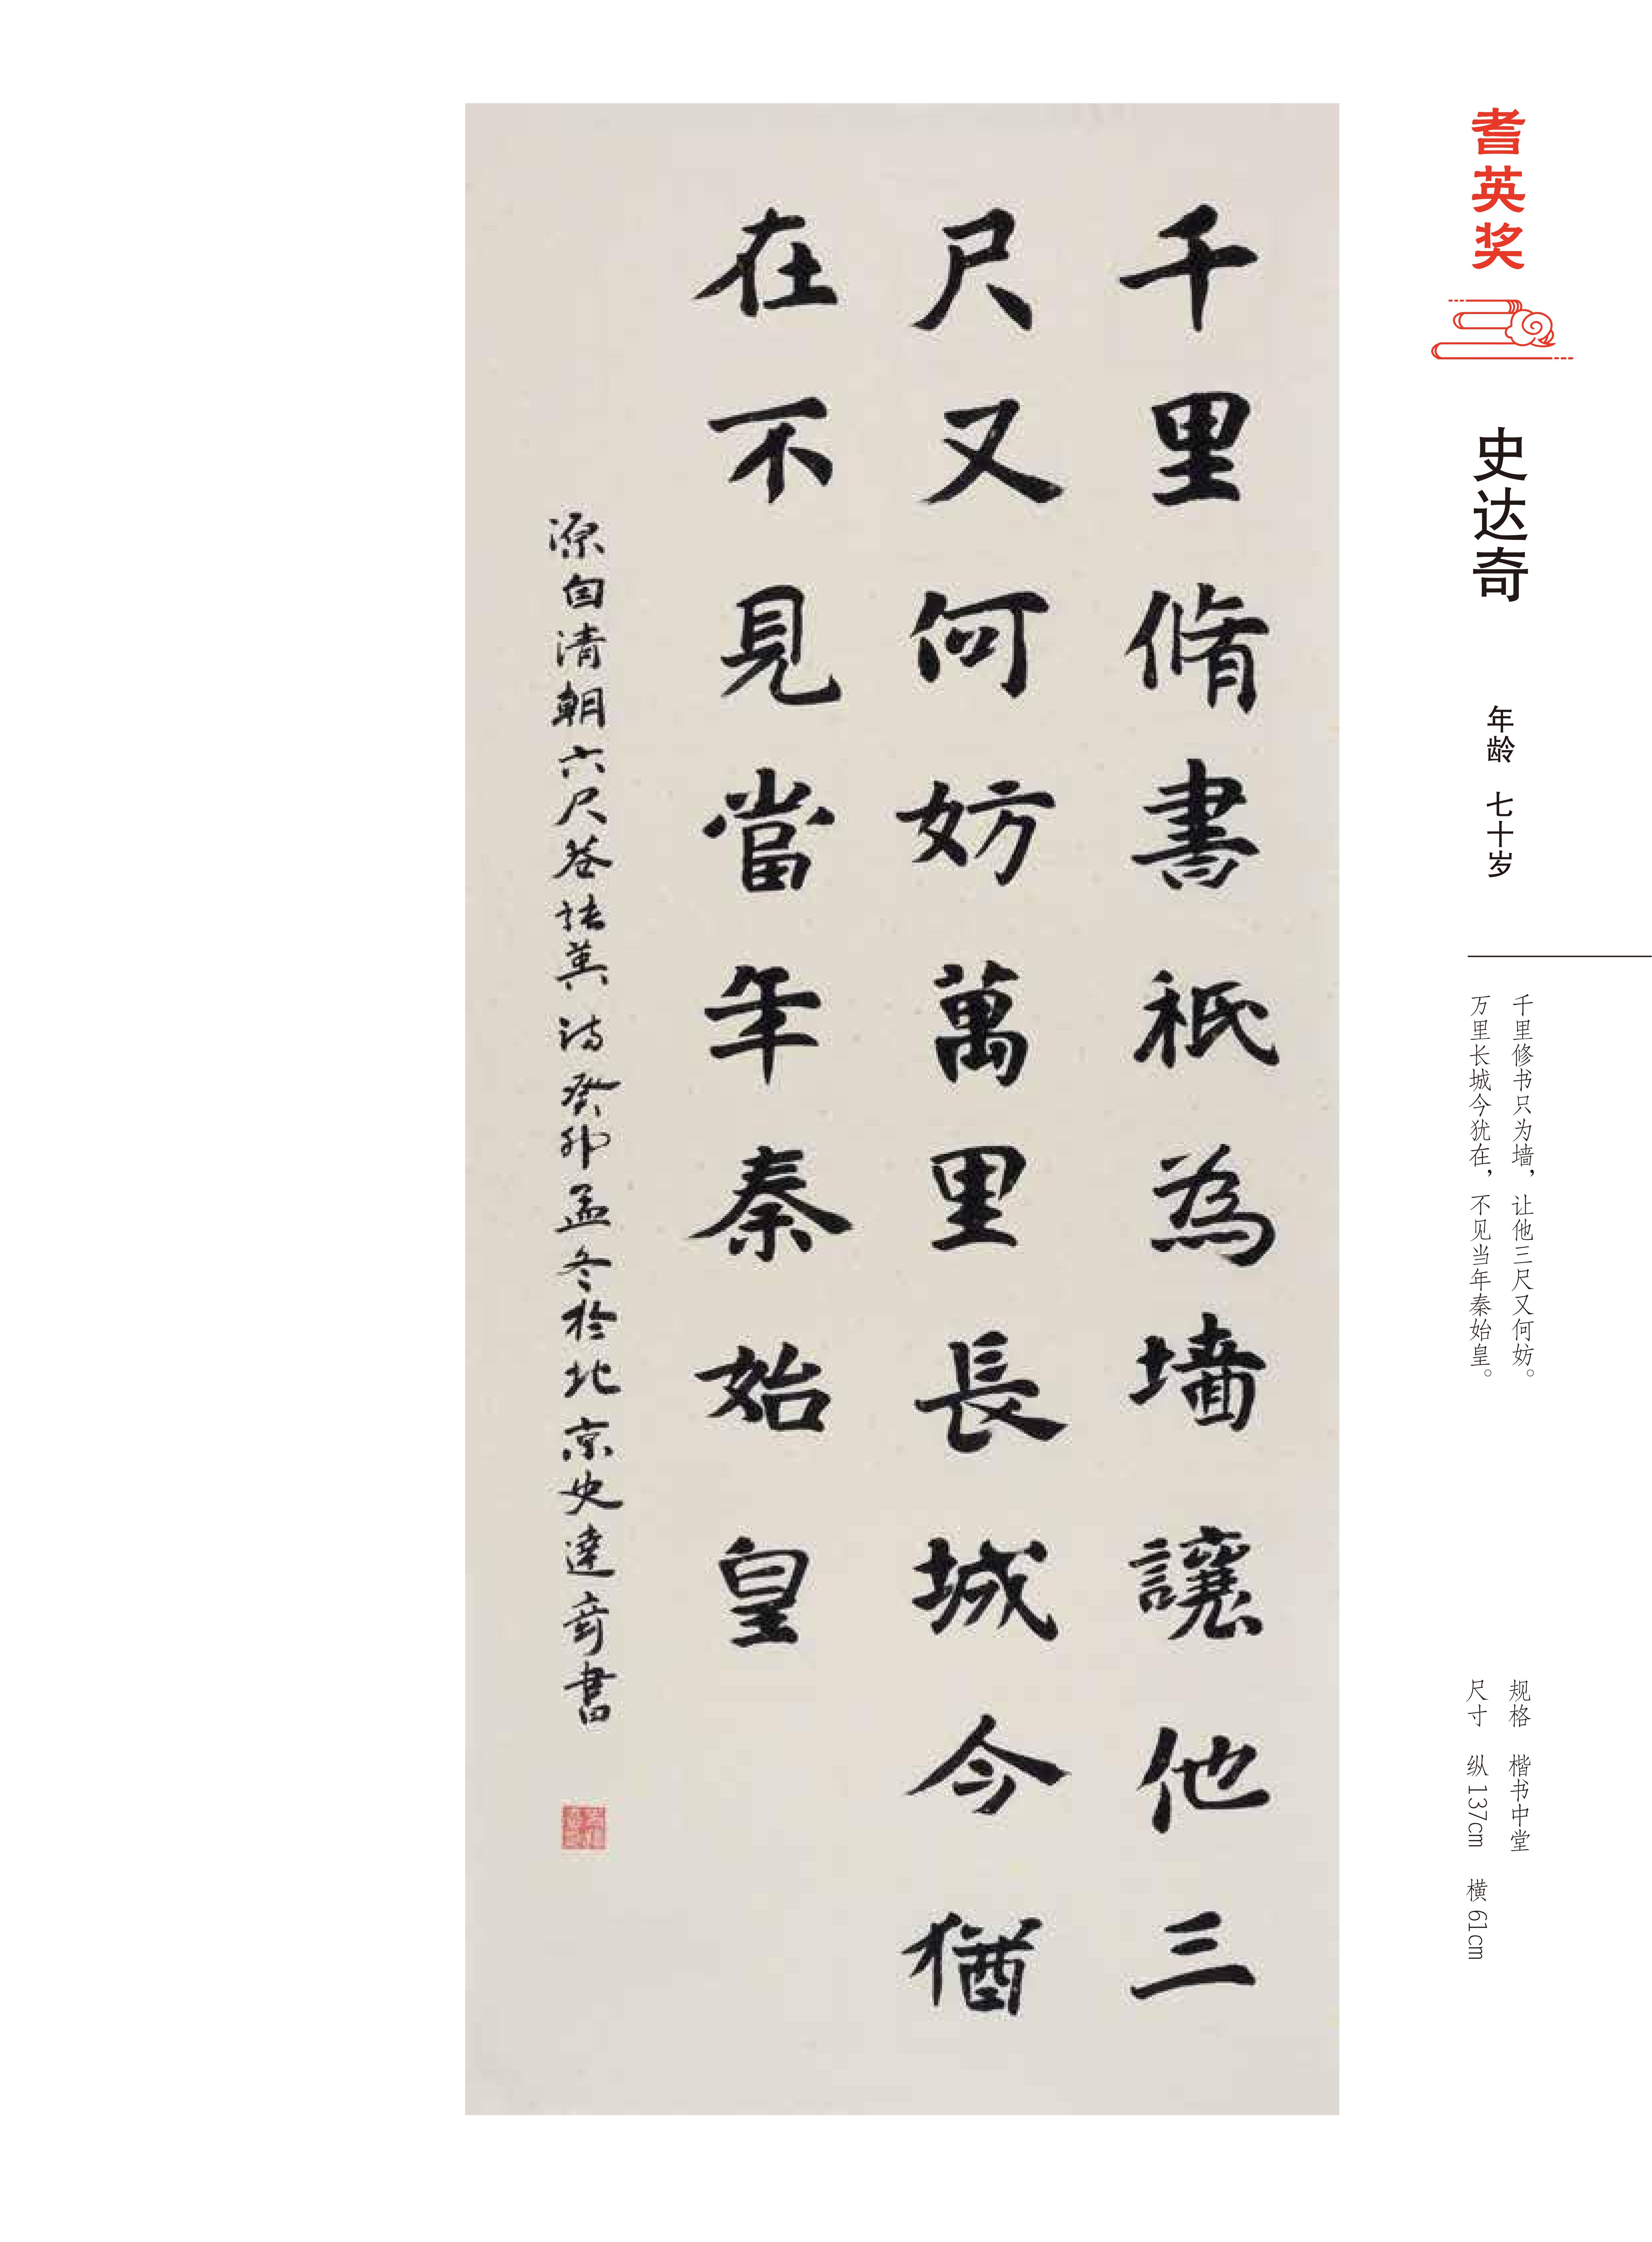 耆英奖
史达奇
年龄 七十岁
千里修书只为墙，让他三尺又何妨。
万里长城今犹在，不见当年秦始皇。
规格 楷书中堂
尺寸 纵137cm 横61cm
千里脩書祇為墻讓他三
尺又何妨萬里長城今猶
在不見當年秦始皇
源自清朝六尺巷张英诗癸卯孟冬於北京史達奇書